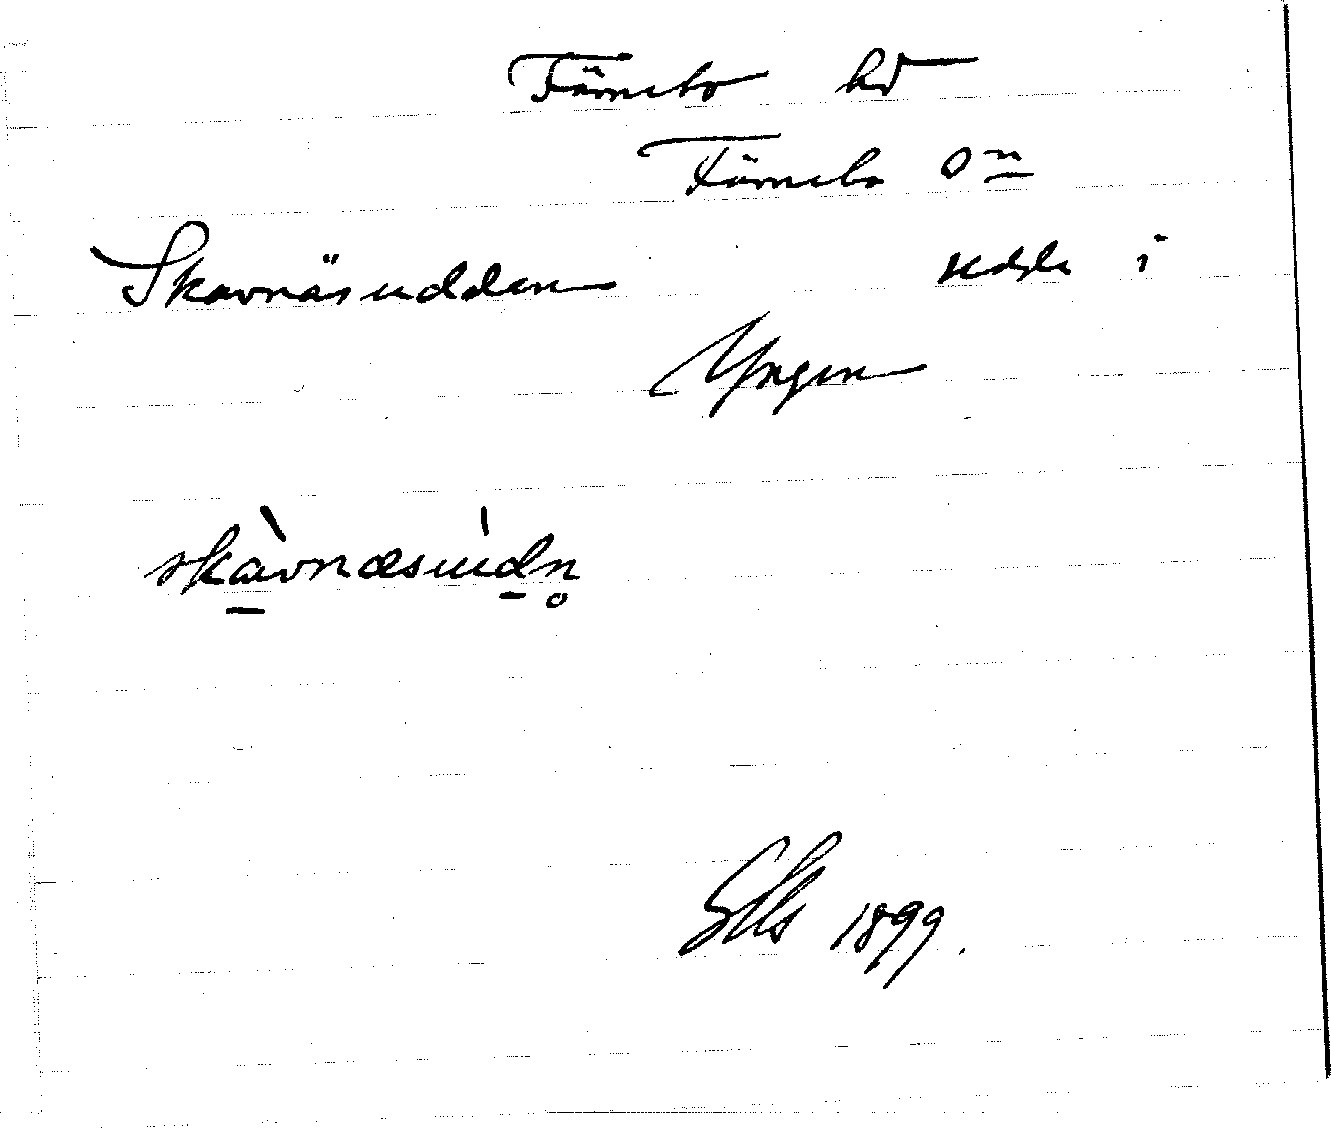 Färnebo hd
Färnebo sn
Skavnäsudden udde i
Yngen
skàvnæsùdn̥
1899.